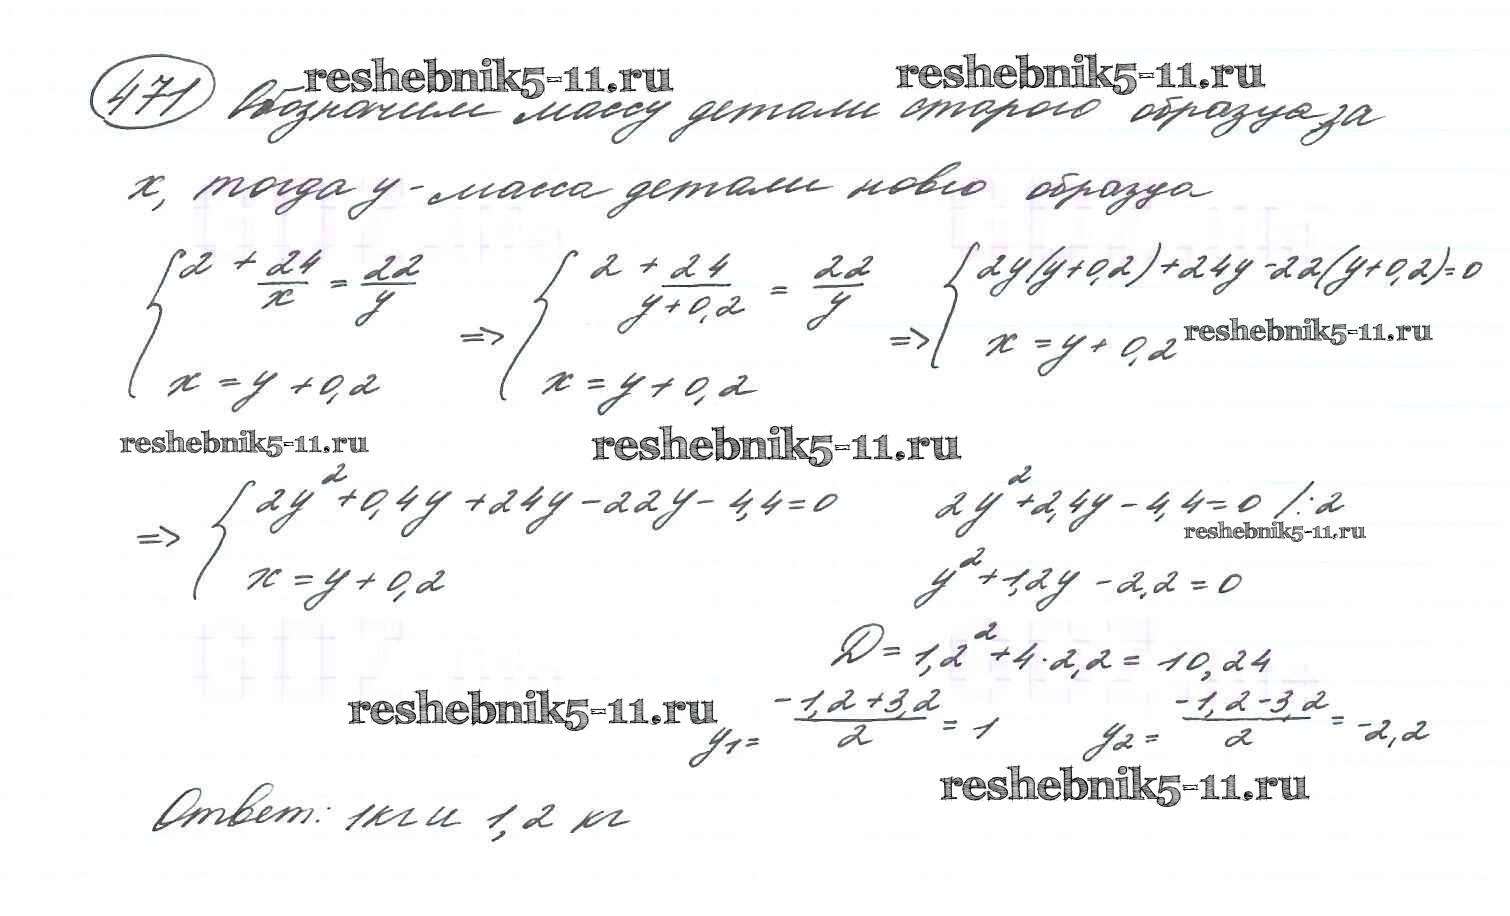 reshebnik5-11.ru reshebnik5-11.ru
471 Обозначим массу детали старого образца за
x, тогда y - масса детали нового образца
{ 2 + 24/x = 22/y => { 2 + 24/(y+0,2) = 22/y => { 2y(y+0,2)+24y-22(y+0,2)=0
x = y + 0,2 x = y + 0,2 x = y + 0,2 reshebnik5-11.ru
reshebnik5-11.ru reshebnik5-11.ru
=> { 2y²+0,4y+24y-22y-4,4=0 2y²+2,4y-4,4=0 /:2
reshebnik5-11.ru
x = y + 0,2 y²+1,2y-2,2=0
D = 1,2²+4·2,2 = 10,24
reshebnik5-11.ru y1 = (-1,2+3,2)/2 = 1 y2 = (-1,2-3,2)/2 = -2,2
reshebnik5-11.ru
Ответ: 1кг и 1,2 кг